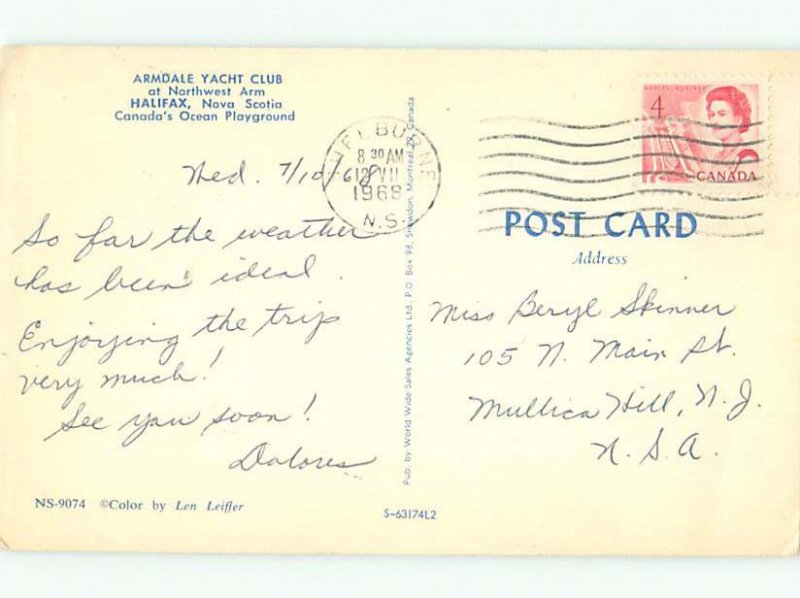 ARMDALE YACHT CLUB
at Northwest Arm
HALIFAX, Nova Scotia
Canada's Ocean Playground
Wed. 7/10/68
So far the weather
has been ideal.
Enjoying the trip
very much!
See you soon!
Dolores
NS-9074 ©Color by Len Leiffer
Pub. by World Wide Sales Agencies Ltd., P.O. Box 98, Snowdon, Montreal 29, Canada
S-63174L2
HELBURNE
8 30 AM
12 VII
1968
N.S.
4
CANADA
POST CARD
Address
Miss Beryl Skinner
105 N. Main St.
Mullica Hill, N.J.
U.S.A.